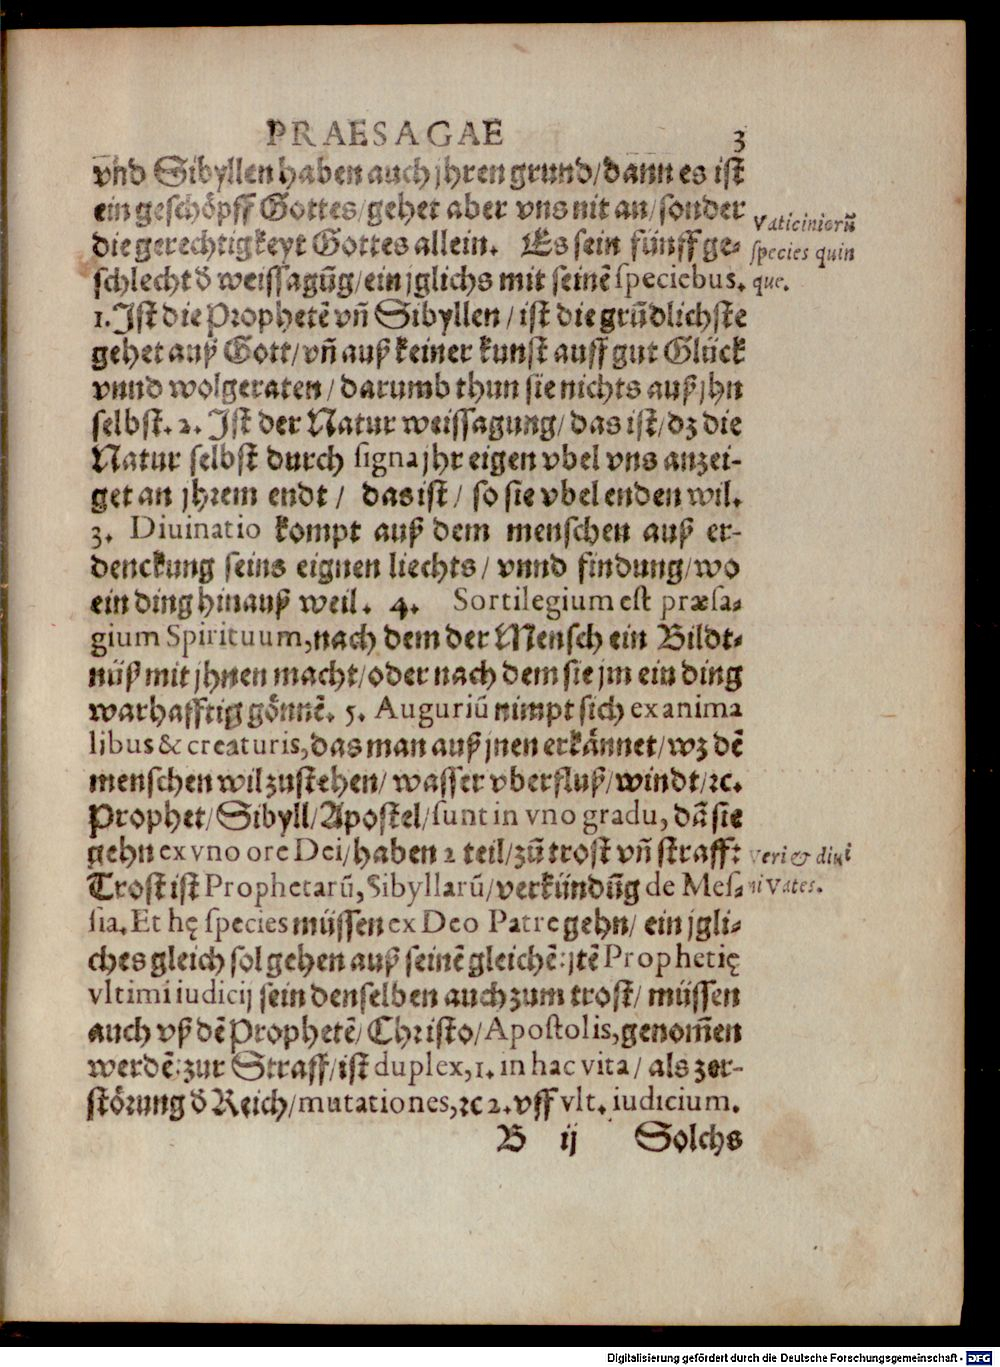 PRAESAGAE 3
vnd Sibyllen haben auch jhren grund/dann es ist
ein geschöpff Gottes/gehet aber vns nit an/sonder
die gerechtigkeyt Gottes allein. Es sein fünff ge-
schlecht d̄ weissagūg/ein jglichs mit seinē speciebus.
Vaticiniorū
species quin
que.
1. Ist die Prophetē vñ Sibyllen/ist die grūdlichste
gehet auß Gott/vñ auß keiner kunst auff gut Glück
vnnd wolgeraten/darumb thun sie nichts auß jhn
selbst. 2. Ist der Natur weissagung/das ist/dz die
Natur selbst durch signa jhr eigen vbel vns anzei-
get an jhrem endt/ das ist/ so sie vbel enden wil.
3. Diuinatio kompt auß dem menschen auß er-
denckung seins eignen liechts/ vnnd findung/wo
ein ding hinauß weil. 4. Sortilegium est præsa-
gium Spirituum, nach dem der Mensch ein Bildt-
nüß mit jhnen macht/oder nach dem sie jm ein ding
warhafftig gönnē. 5. Auguriū nimpt sich ex anima
libus & creaturis, das man auß jnen erkännet/wz dē
menschen wil zustehen/ wasser vberfluß/windt/ꝛc.
Prophet/Sibyll/Apostel/sunt in vno gradu, dā sie
gehn ex vno ore Dei/haben 2 teil/zū trost vñ straff:
Trost ist Prophetarū, Sibyllarū/verkündūg de Mes-
Veri & diui
ni Vates.
sia. Et hę species müssen ex Deo Patre gehn/ ein jgli-
ches gleich sol gehen auß seinē gleichē: jtē Prophetię
vltimi iudicij sein denselben auch zum trost/ müssen
auch vß dē Prophetē/Christo/Apostolis, genom̄en
werdē: zur Straff/ist duplex, 1. in hac vita/ als zer-
störung d̄ Reich/mutationes, ꝛc 2. vff vlt. iudicium.
B ij Solchs
Digitalisierung gefördert durch die Deutsche Forschungsgemeinschaft - DFG